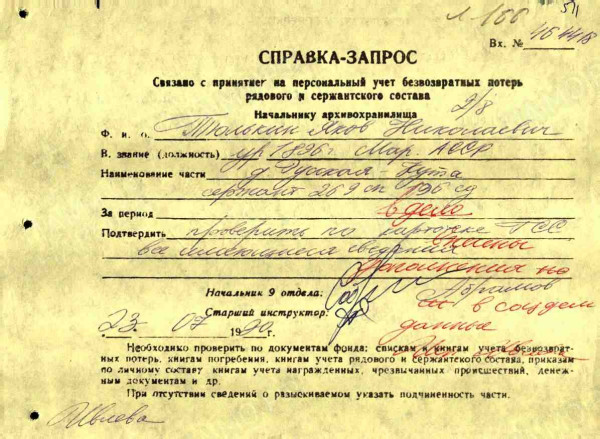 л-166
Вх. №
СПРАВКА-ЗАПРОС
Связано с принятием на персональный учет безвозвратных потерь
рядового и сержантского состава
Начальнику архивохранилища
Ф. и. о. Тюлькин Яков Николаевич
В. звание (должность) ур 1896 г Мар АССР
Наименование части д Русская-
сержант 269 сп 136 сд
За период в дело
Подтвердить проверить по картотеке ГСС
все имеющиеся сведения
на
Начальник 9 отдела: Абрамов
Старший инструктор:
в соцдем
„23“ 07 1990 г. данные
Необходимо проверить по документам фонда: спискам и книгам учета безвозврат-
ных потерь, книгам погребения, книгам учета рядового и сержантского состава, приказам
по личному составу книгам учета награжденных, чрезвычайных происшествий, денеж-
ным документам и др.
При отсутствии сведений о разыскиваемом указать подчиненность части.
Ивлева